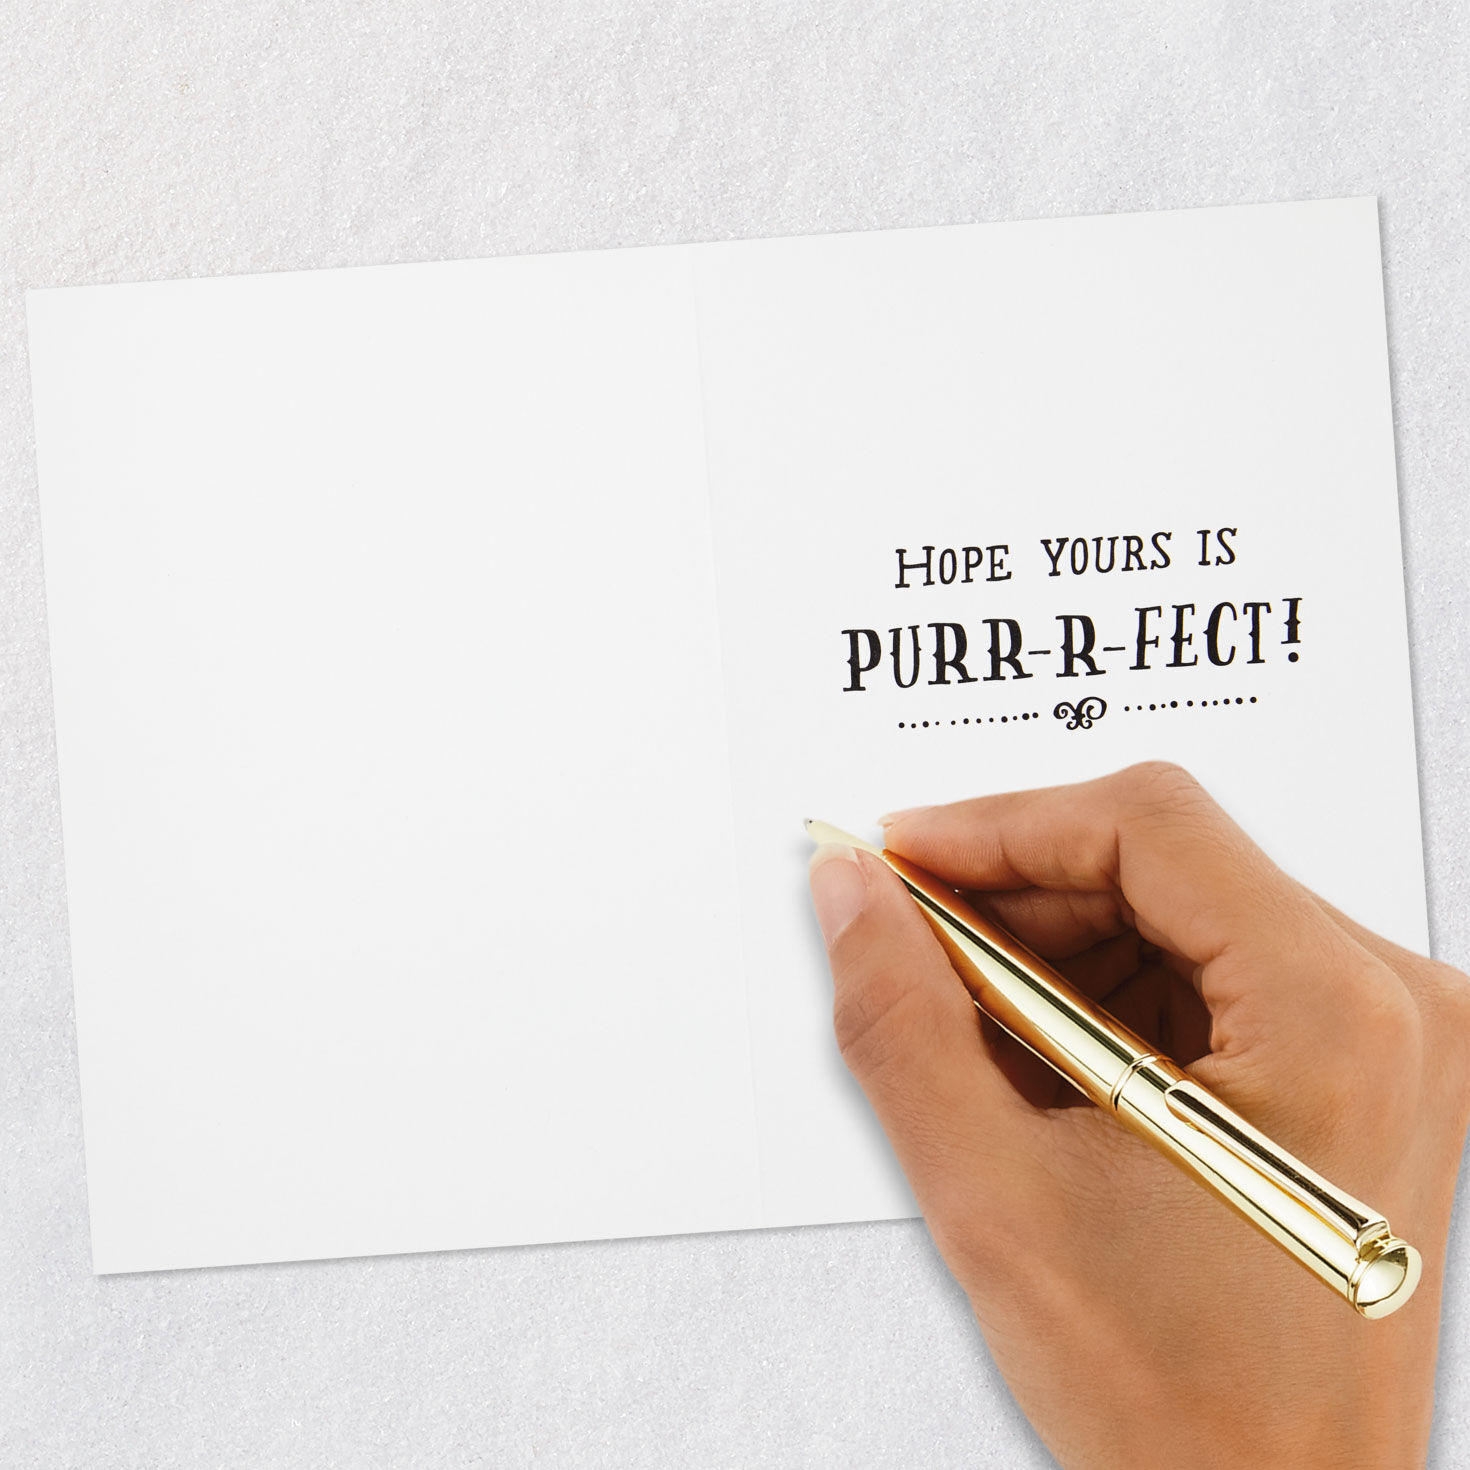 HOPE YOURS IS
PURR-R-FECT!